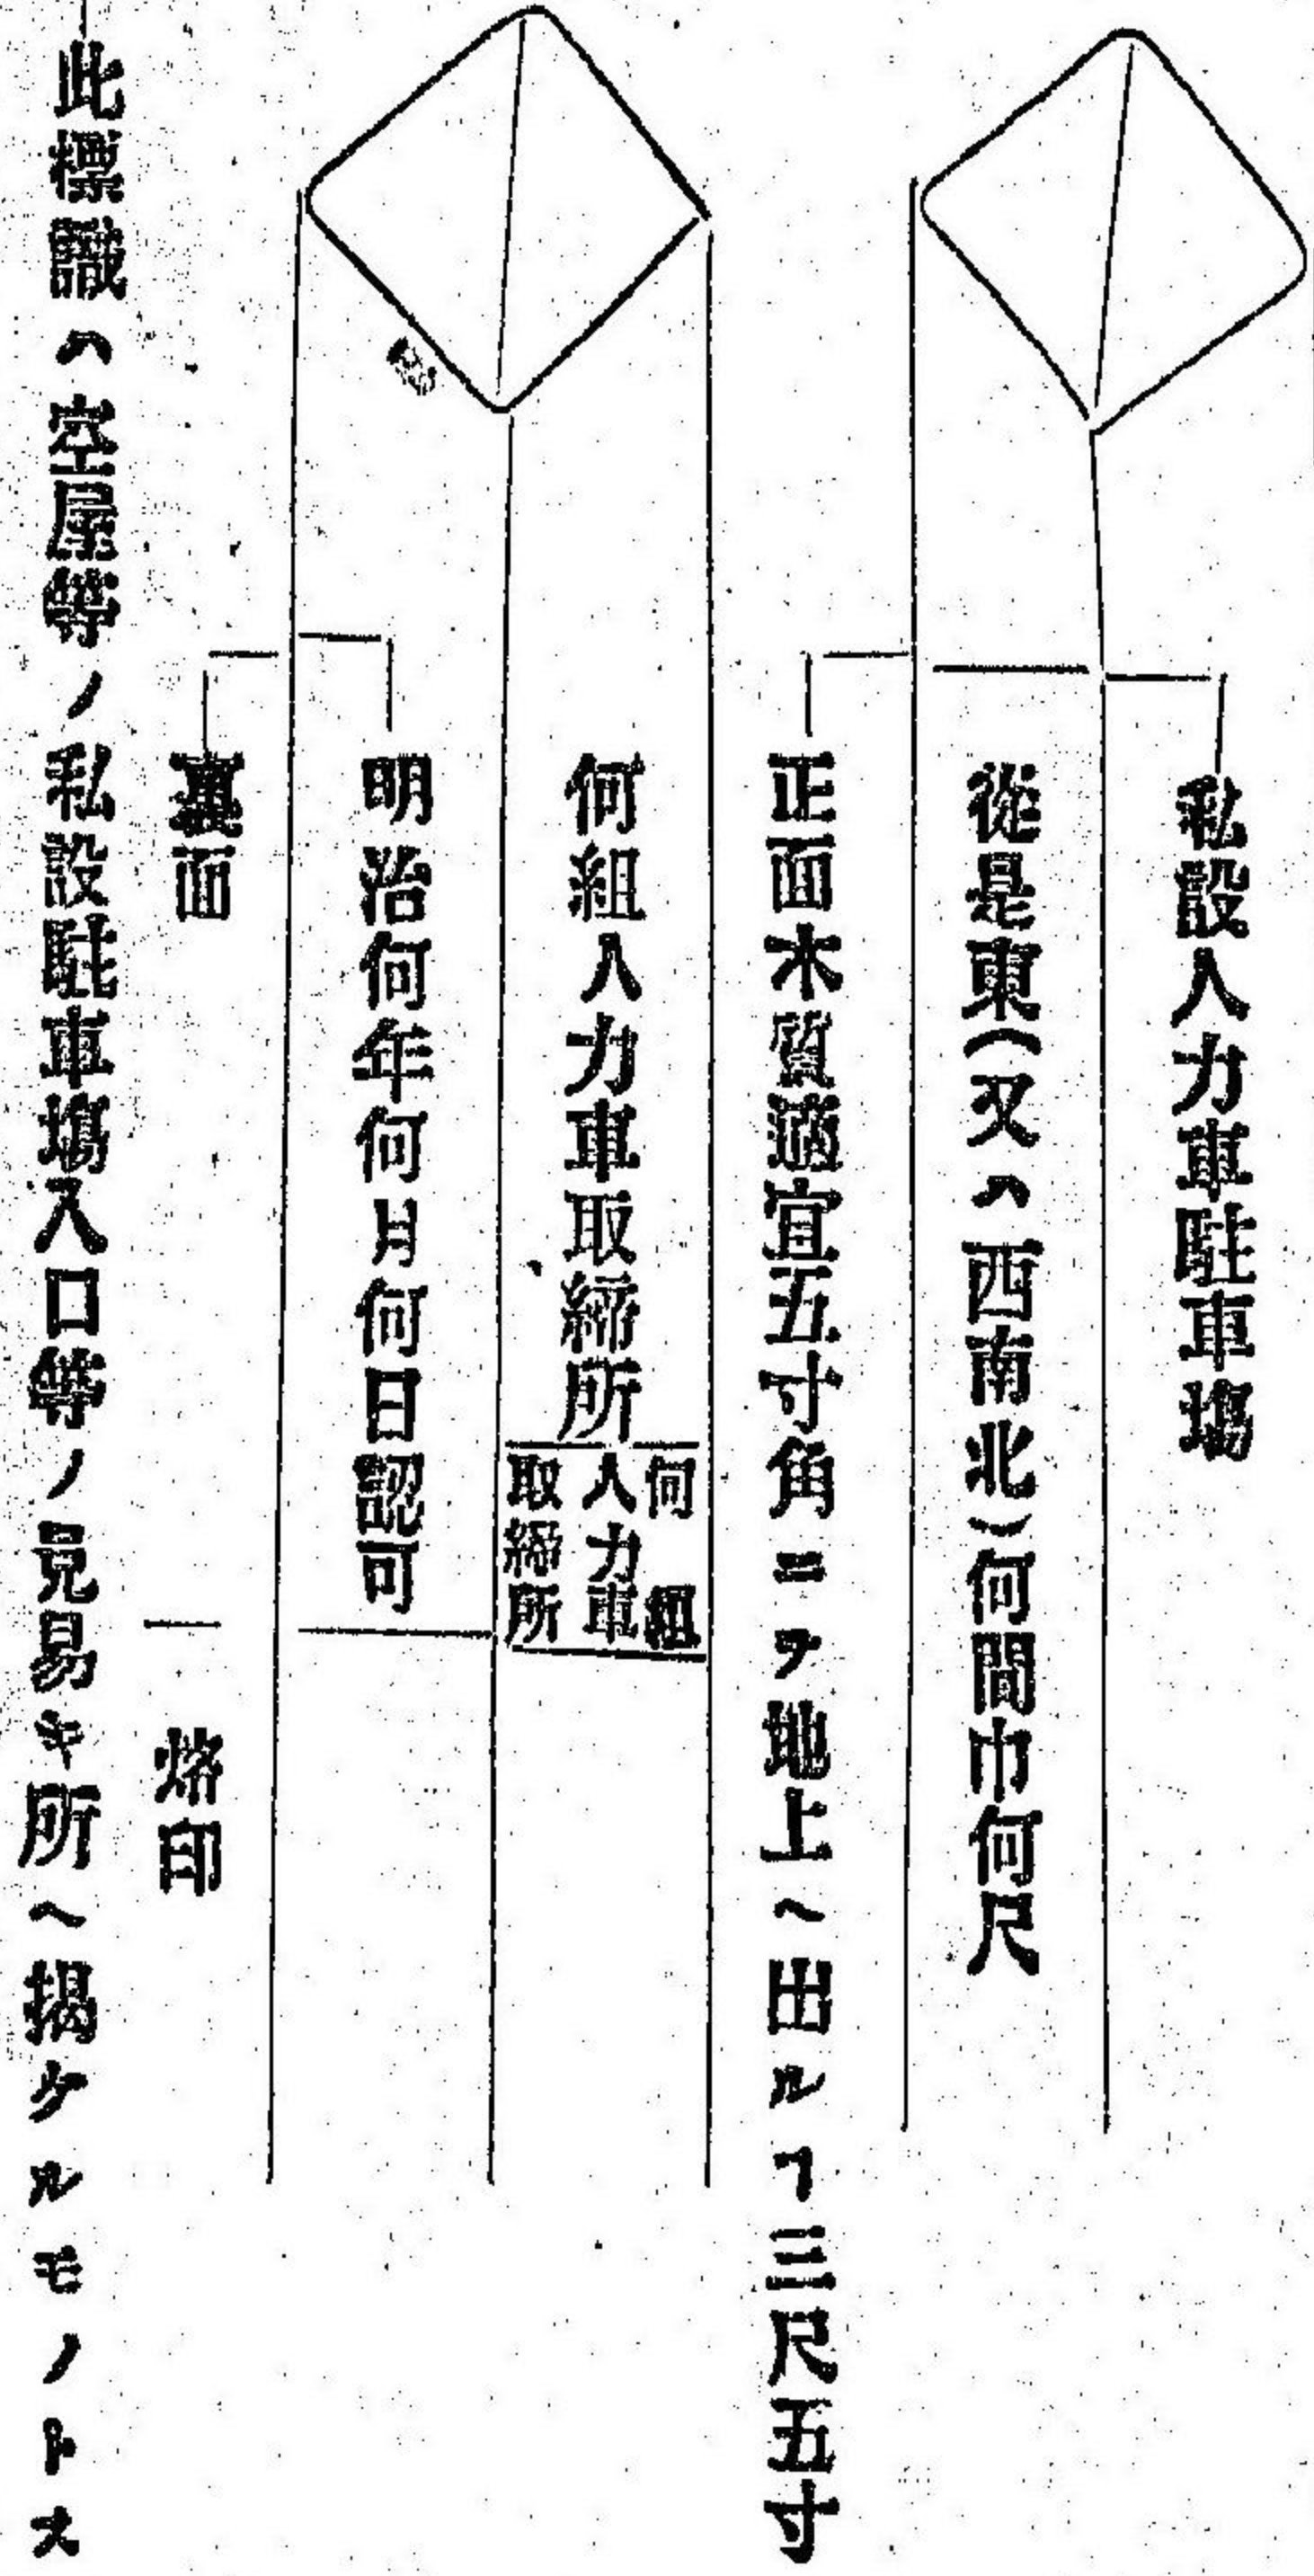 私設人力車駐車塲
從是東(又ハ西南北)何間巾何尺
正面木質適宜五寸角ニヲ地上ヘ出ルヿ三尺五寸
何組人力車取締所
何組
人力車
取締所
明治何年何月何日認可
裏面
烙印
此標識ハ空屋等ノ私設駐車塲入口等ノ見易キ所ヘ揭ケルモノトス